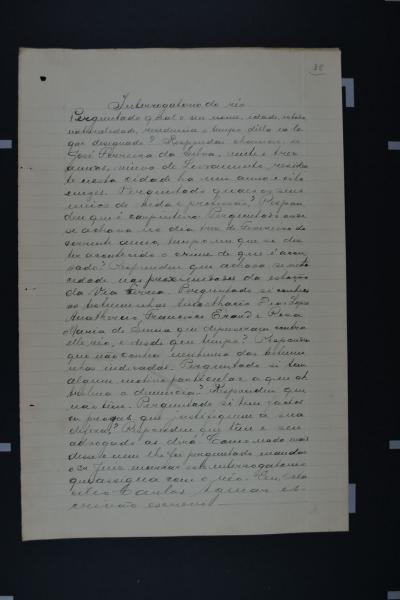 38
Interrogatorio do réo
Perguntado qual o seu nome, idade, estado
naturalidade, residencia e tempo della no lo-
gar designado? Respondeu chamar-se
José Ferreira da Silva, vinte e tres
annos, nativo de Livramento, residen
te nesta cidade ha um anno e oito
mezes. Perguntado quaes os seus
meios de vida e profissão? Respon
deu que é carpinteiro. Perguntado onde
se achava no dia tres de Fevereiro do
corrente anno, tempo em que se diz
ter acontecido o crime de que é accu
sado? Respondeu que achava-se nesta
cidade nas proximidades da estação
da Via Ferrea. Perguntado se conhece
as testemunhas
Francisco
Maria de que depuseram contra
elle réo, e desde que tempo? Respondeu
que não conhece nenhuma das testemu
nhas indicadas. Perguntado si tem
algum motivo particular a que at
tribua a denuncia? Respondeu que
não tem. Perguntado si tem factos
ou provas que justifiquem a sua
defesa? Respondeu que tem e seu
advogado as dirá. Como nada mais
disse e nem lhe foi perguntado mandou
o Sr. Juiz encerrar este interrogatorio
que assigna com o réo. Eu,
Carlos es-
crivão escrevi